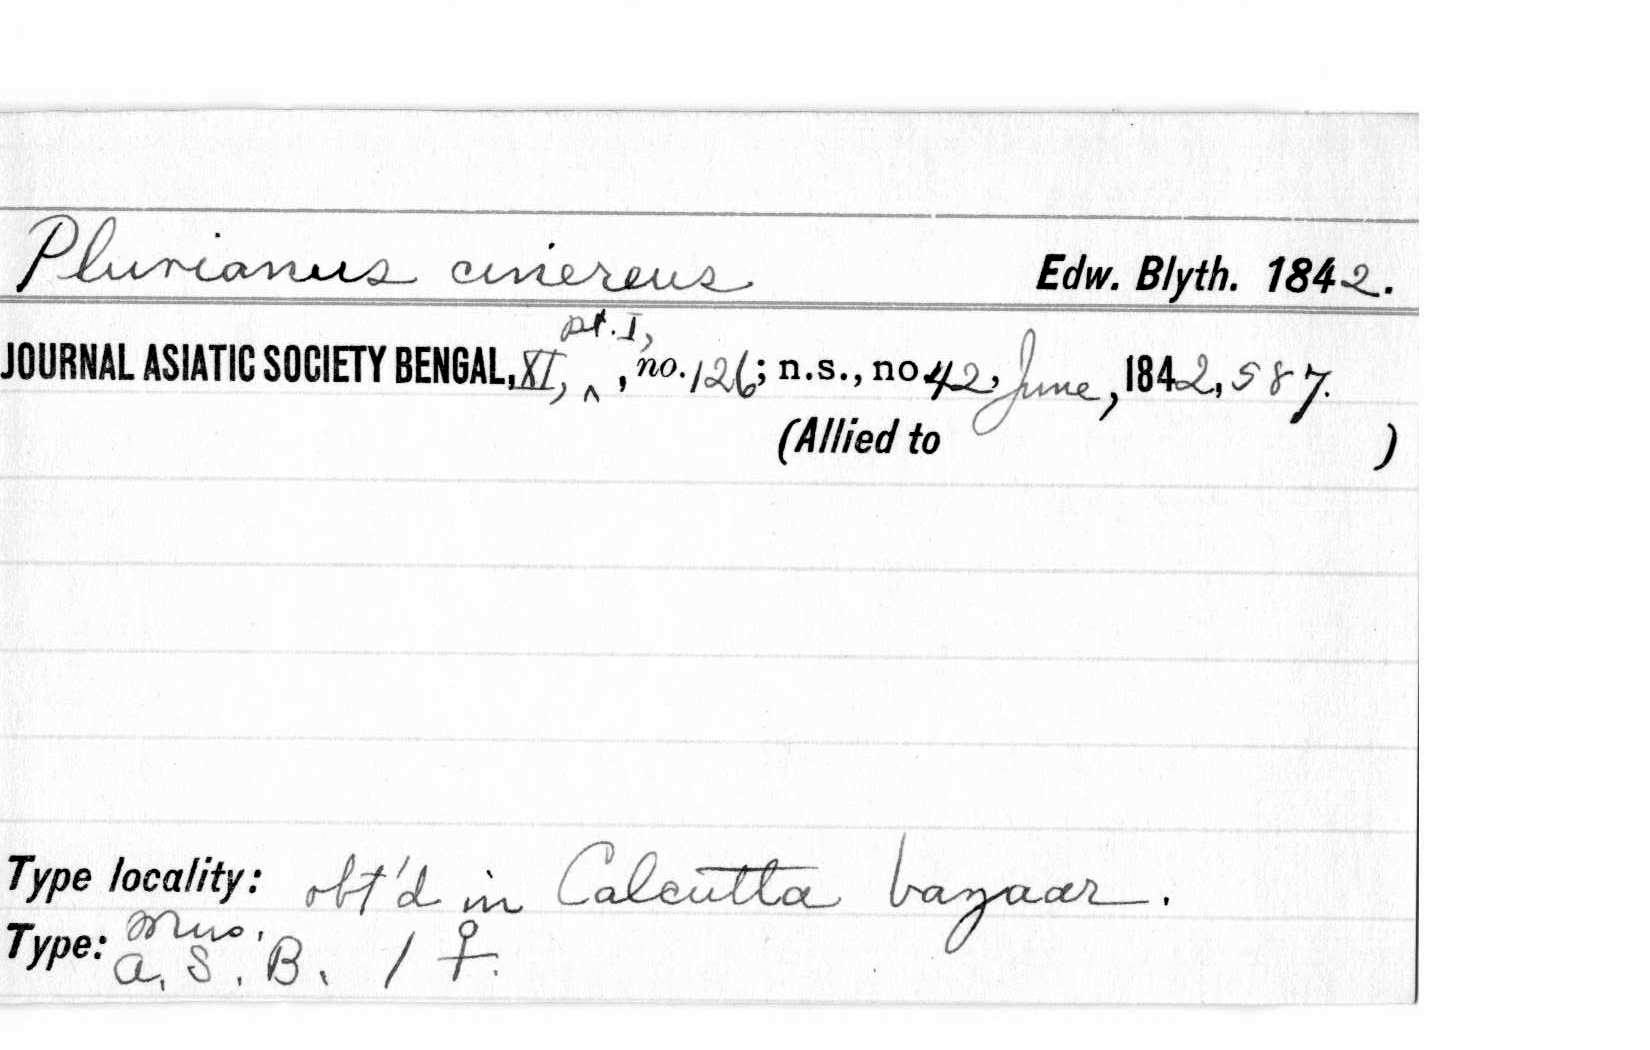 Pluvianus cinereus Edw. Blyth. 1842.
JOURNAL ASIATIC SOCIETY BENGAL, XI, pt. I, , no. 126; n.s., no 42, June, 1842, 587.
(Allied to )
Type locality: obt'd in Calcutta bazaar.
Type: Mus. A. S. B. 1 ♀.